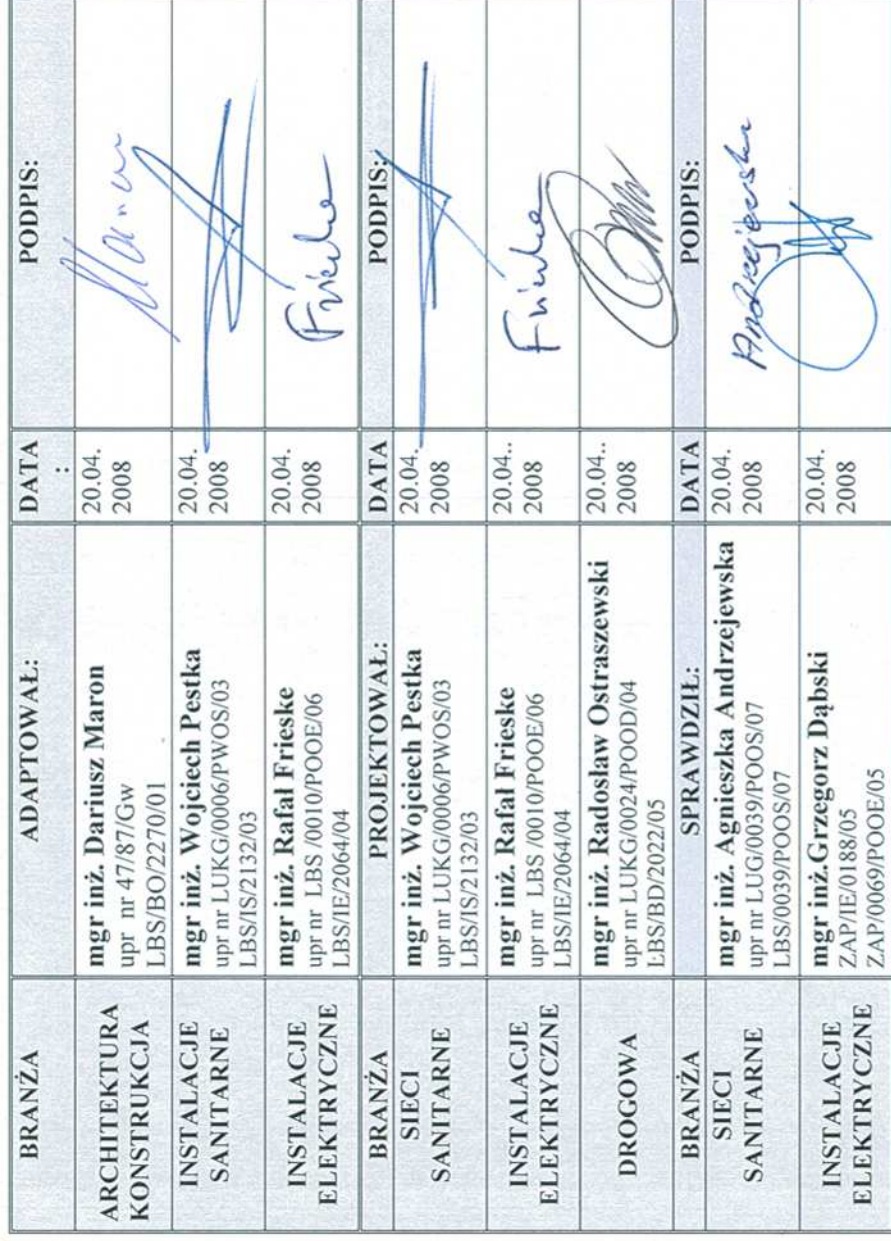 BRANŻA
ADAPTOWAŁ:
DATA
:
PODPIS:
ARCHITEKTURA
KONSTRUKCJA
mgr inż. Dariusz Maron
upr nr 47/87/Gw
LBS/BO/2270/01
20.04.
2008
INSTALACJE
SANITARNE
mgr inż. Wojciech Pestka
upr nr LUKG/0006/PWOS/03
LBS/IS/2132/03
20.04.
2008
INSTALACJE
ELEKTRYCZNE
mgr inż. Rafał Frieske
upr nr LBS /0010/POOE/06
LBS/IE/2064/04
20.04.
2008
Frieske
BRANŻA
PROJEKTOWAŁ:
DATA
PODPIS:
SIECI
SANITARNE
mgr inż. Wojciech Pestka
upr nr LUKG/0006/PWOS/03
LBS/IS/2132/03
20.04.
2008
INSTALACJE
ELEKTRYCZNE
mgr inż. Rafał Frieske
upr nr LBS /0010/POOE/06
LBS/IE/2064/04
20.04..
2008
Frieske
DROGOWA
mgr inż. Radosław Ostraszewski
upr nr LUKG/0024/POOD/04
LBS/BD/2022/05
20.04..
2008
BRANŻA
SPRAWDZIŁ:
DATA
PODPIS:
SIECI
SANITARNE
mgr inż. Agnieszka Andrzejewska
upr nr LUG/0039/POOS/07
LBS/0039/POOS/07
20.04.
2008
Andrzejewska
INSTALACJE
ELEKTRYCZNE
mgr inż.Grzegorz Dąbski
ZAP/IE/0188/05
ZAP/0069/POOE/05
20.04.
2008